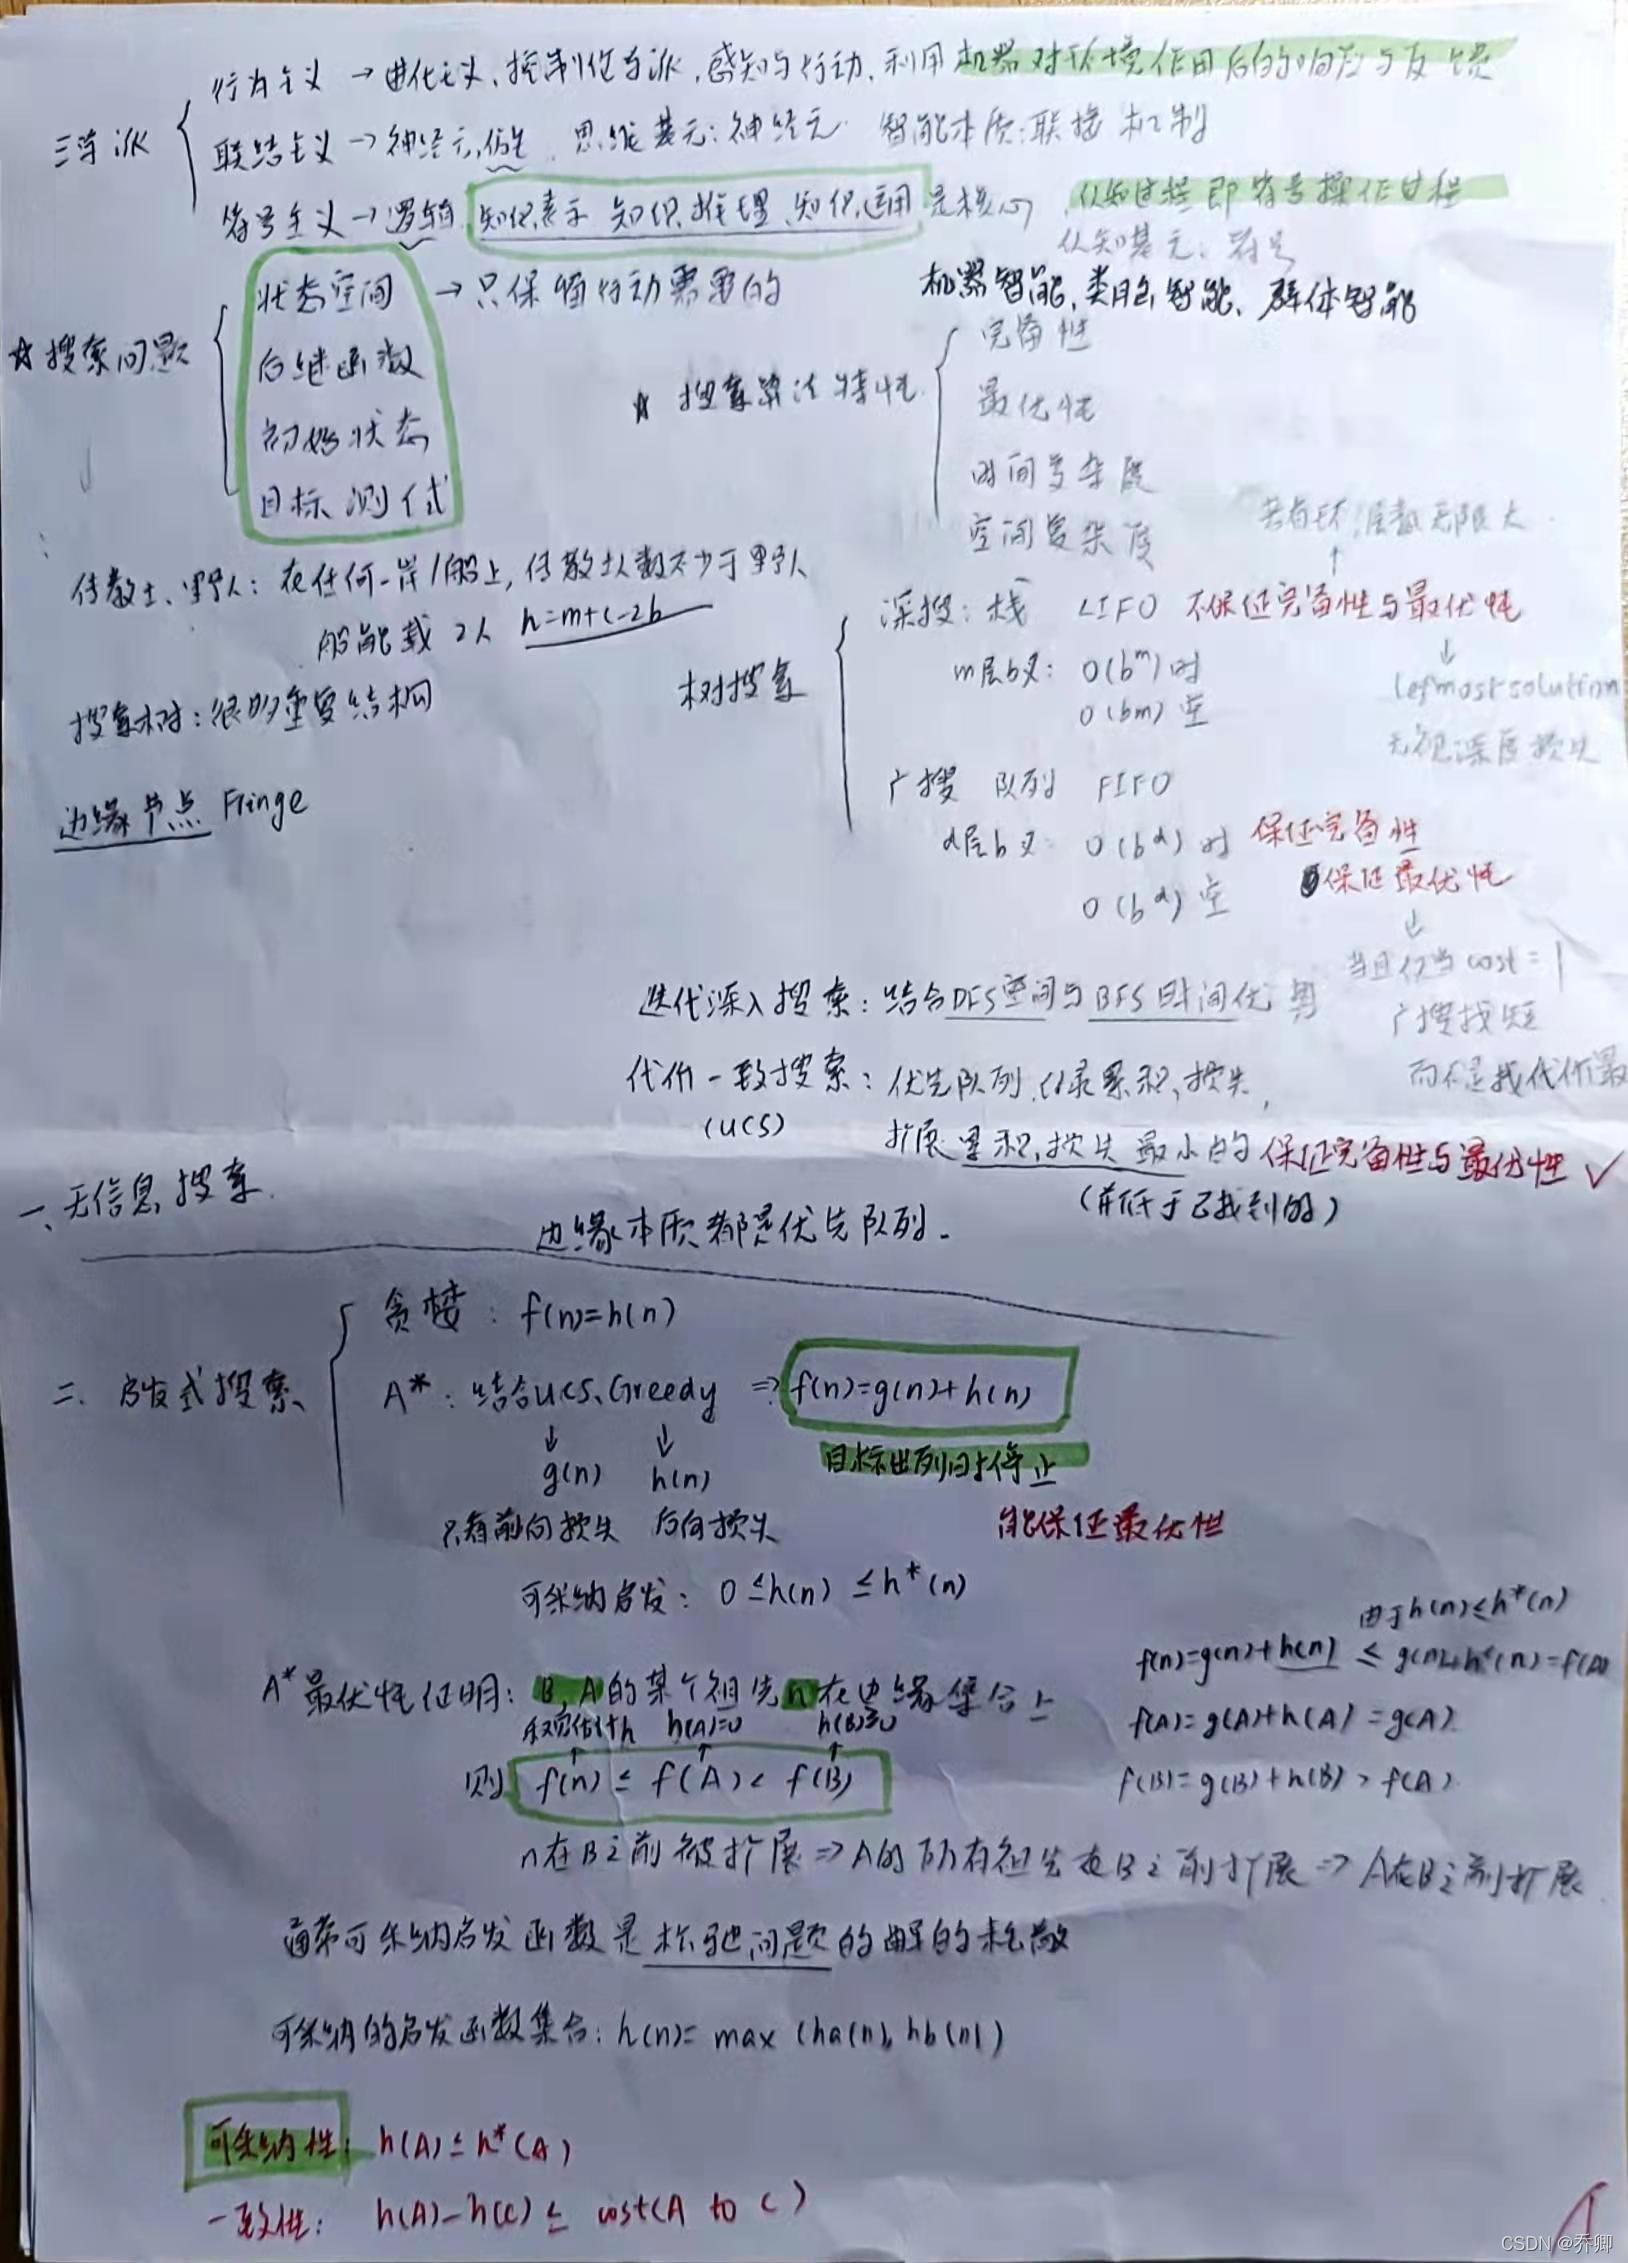 三学派
行为主义 → 进化主义、控制论学派,感知与行动,利用机器对环境作用后的响应与反馈
联结主义 → 神经元,仿生 思维基元:神经元 智能本质:联接机制
符号主义 → 逻辑 知识表示 知识推理、知识运用 是核心,认知过程即符号操作过程
认知基元:符号
机器智能,类脑智能、群体智能
☆搜索问题
状态空间 → 只保留行动需要的
后继函数
初始状态
目标测试
☆ 搜索算法特性
完备性
最优性
时间复杂度
空间复杂度
传教士、野人:在任何一岸/船上,传教士人数不少于野人
船能载 2人 h=m+c-2b
搜索树:很多重复结构
边缘节点 Fringe
树搜索
若有环,层数无限大
深搜:栈 LIFO 不保证完备性与最优性
m层b叉: O(b^m)时
O(bm)空
leftmost solution
无视深度损失
广搜 队列 FIFO
d层b叉: O(b^d)时 保证完备性
O(b^d)空 保证最优性
当且仅当cost=1
广搜找短
而不是找代价最
迭代深入搜索:结合DFS空间与BFS时间优势
代价一致搜索:优先队列,记录累积损失,
(UCS)
扩展累积损失最小的 保证完备性与最优性 ✓
(并低于已找到的)
一、无信息搜索
边缘本质都是优先队列.
二、启发式搜索
贪婪:f(n)=h(n)
A*:结合UCS、Greedy ⇒ f(n)=g(n)+h(n)
↓ ↓
g(n) h(n)
目标出列时停止
只看前向损失 后向损失
能保证最优性
可采纳启发: 0≤h(n)≤h*(n)
由于h(n)≤h*(n)
f(n)=g(n)+h(n) ≤ g(n)+h*(n)=f(A)
f(A)=g(A)+h(A)=g(A)
f(B)=g(B)+h(B)>f(A)
A*最优性证明:B,A的某个祖先n在边缘集合上
h(A)=0 h(B)≥0
则 f(n) ≤ f(A) < f(B)
n在B之前被扩展 ⇒ A的所有祖先在B之前扩展 ⇒ A在B之前扩展
通常可采纳启发函数是松弛问题的解的耗散
可采纳的启发函数集合:h(n)= max (ha(n), hb(n))
可采纳性:h(A)≤h*(A)
一致性: h(A)-h(C)≤ cost(A to C)
CSDN @乔卿